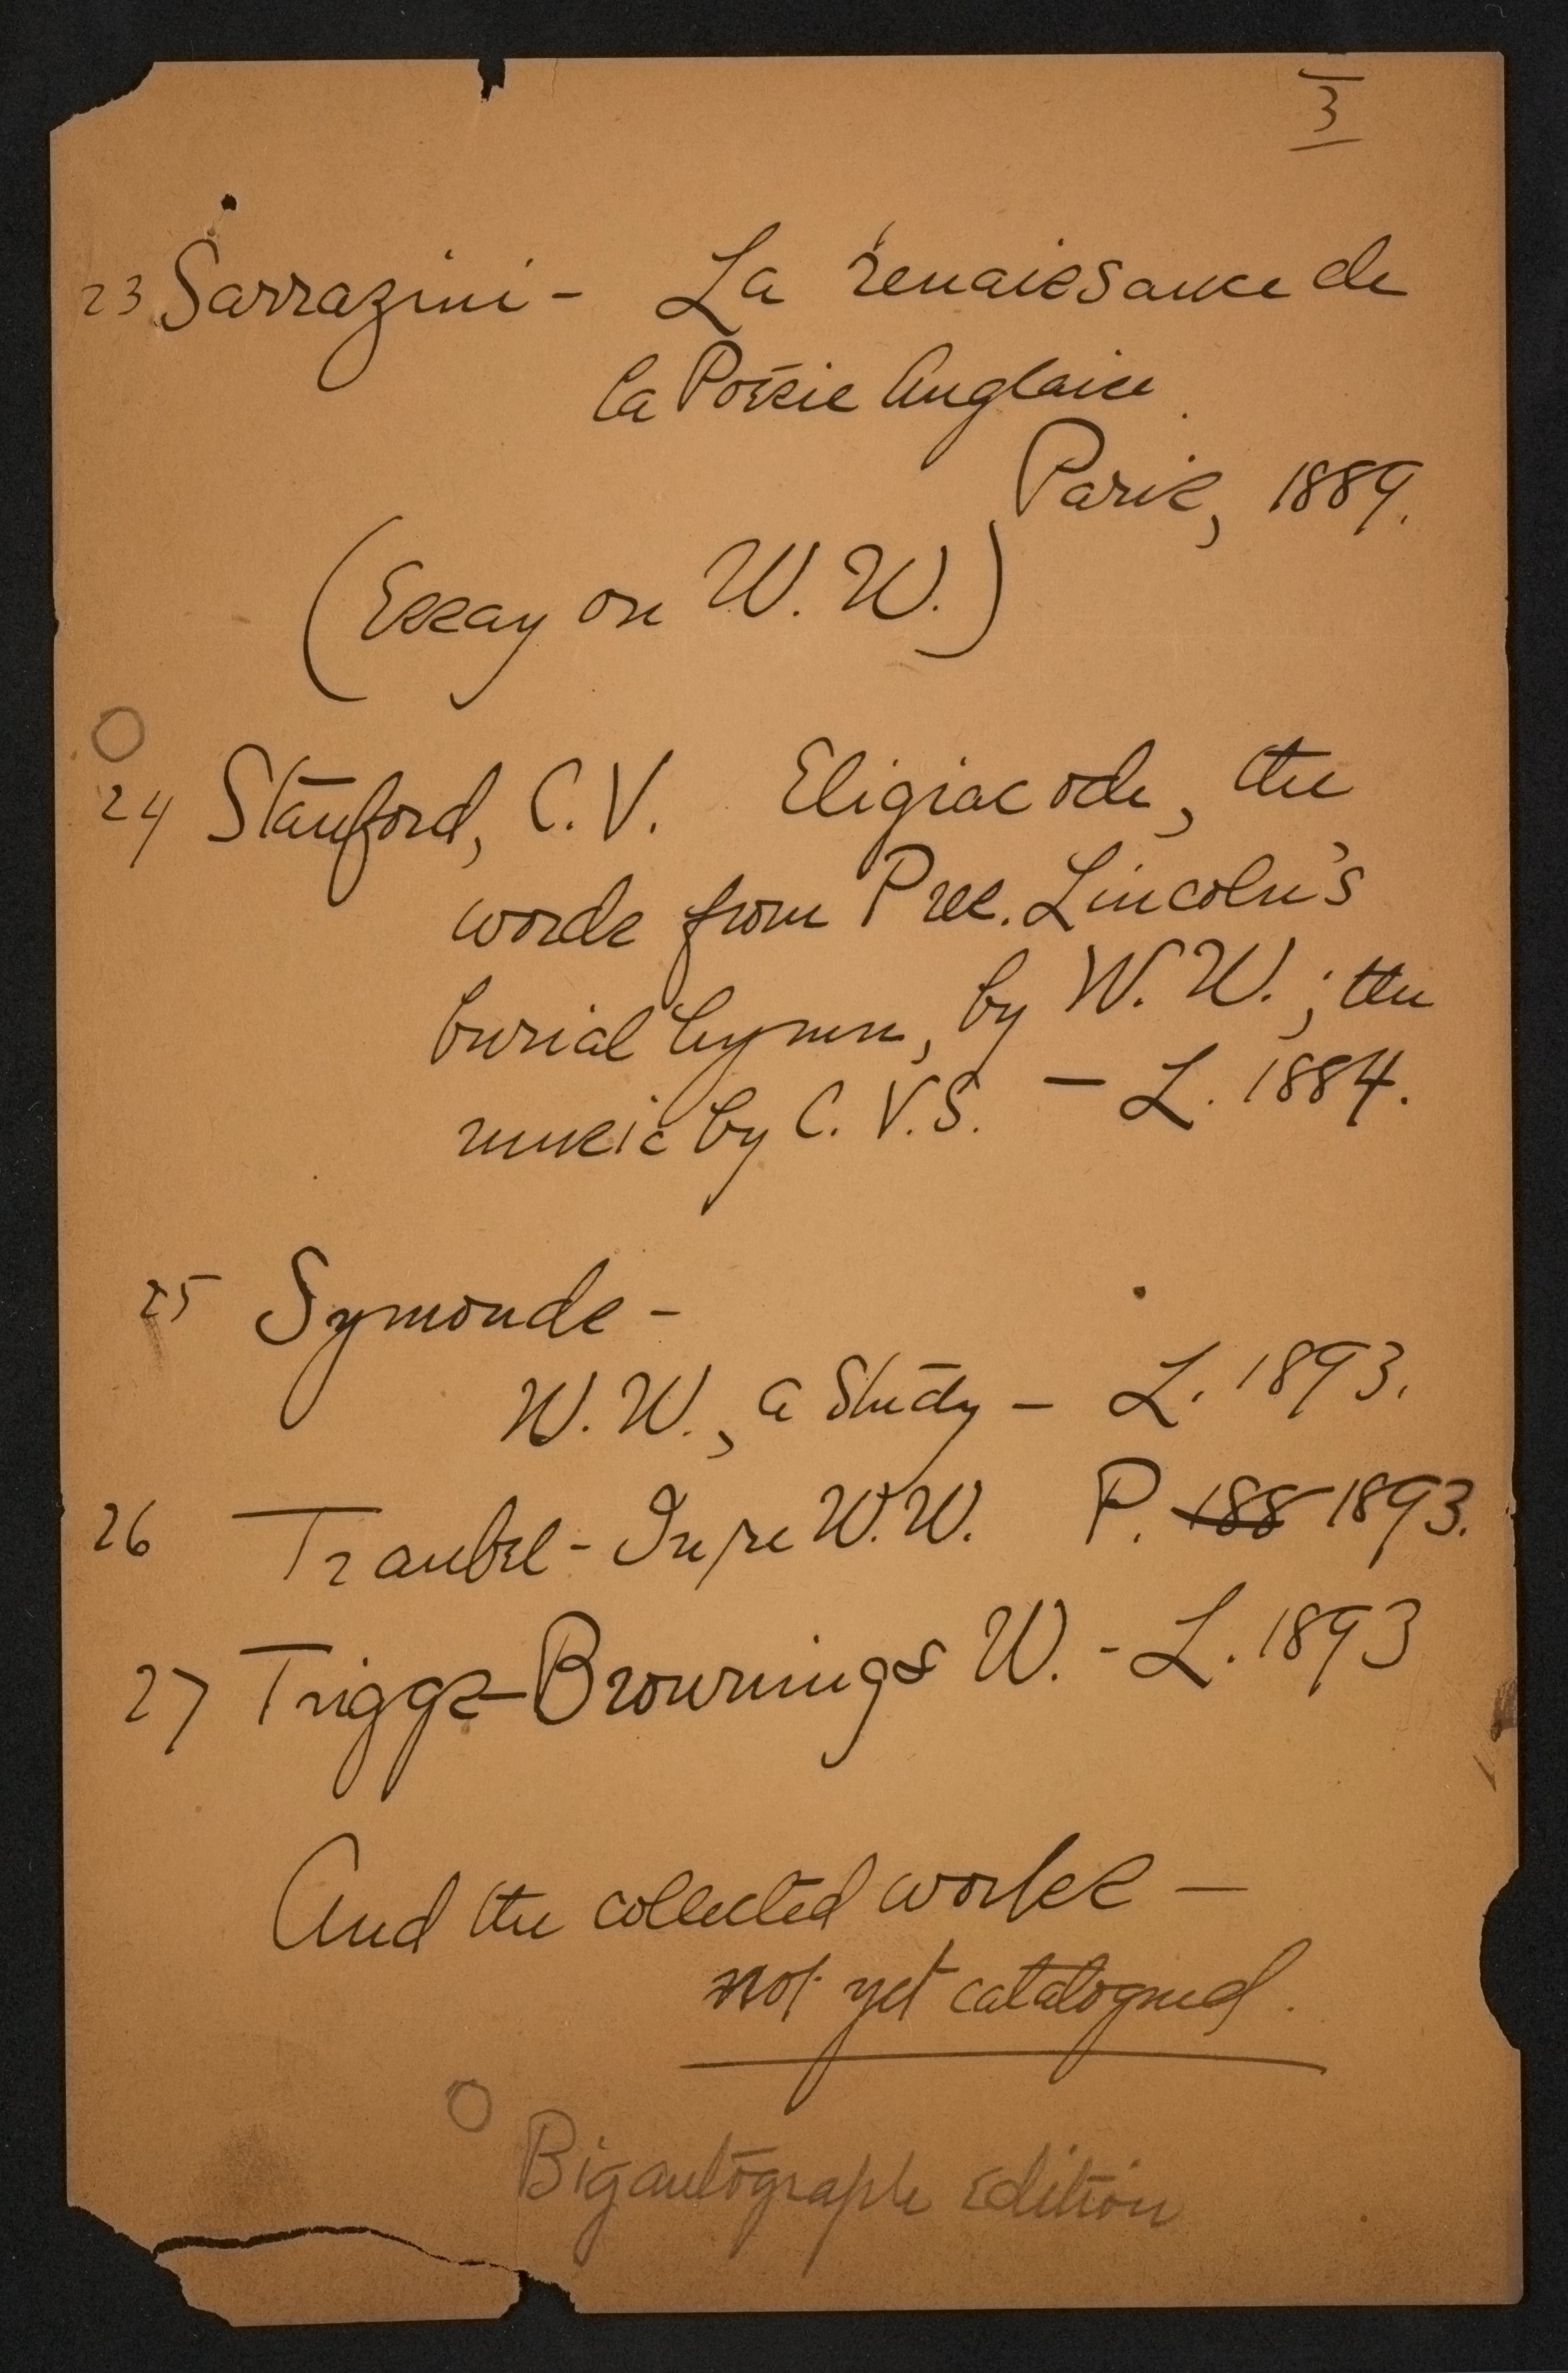 3
23 Sarrazini - La renaissance de
la Poésie Anglaise.
Paris, 1889.
(Essay on W. W.)
24 Stanford, C. V. Eligiac ode, the
words from Pres. Lincoln's
burial hymn, by W. W.; the
music by C. V. S. — L. 1884.
25 Symonds -
W. W., a Study — L. 1893.
26 Traubel - In re W. W. P. 188 1893.
27 Triggs - Browning & W. - L. 1893
And the collected works —
not yet catalogued.
Big autograph edition